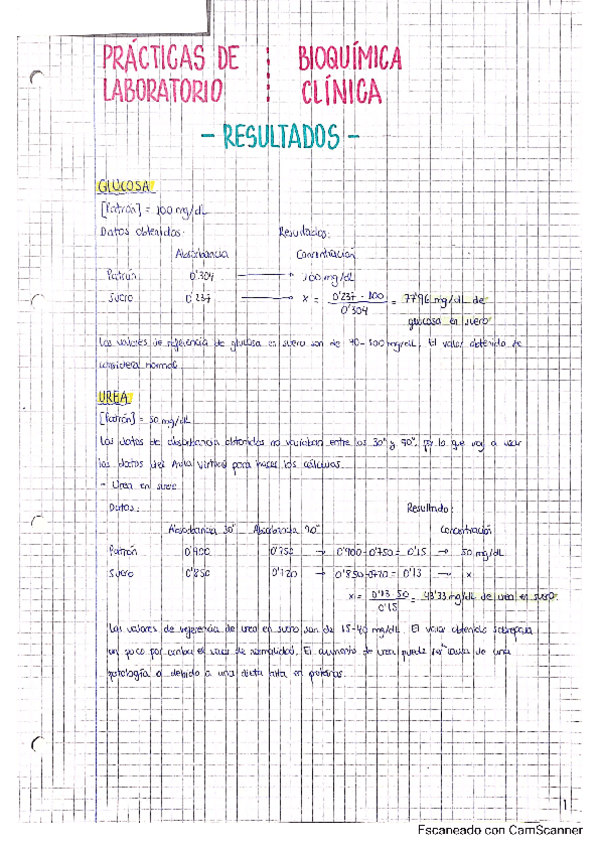 PRÁCTICAS DE : BIOQUÍMICA
LABORATORIO : CLÍNICA
- RESULTADOS -
GLUCOSA
[Patrón] = 100 mg/dL
Datos obtenidos: Resultados:
Absorbancia Concentración
Patrón 0'304 → 100 mg/dL
Suero 0'237 → x = 0'237 · 100 / 0'304 = 77'96 mg/dL de
glucosa en suero
Los valores de referencia de glucosa en suero son de 70-100 mg/dL. El valor obtenido se
considera normal.
UREA
[Patrón] = 50 mg/dL
Los datos de absorbancia obtenidos no variaban entre los 30" y 90", por lo que voy a usar
los datos del Aula Virtual para hacer los cálculos.
- Urea en suero
Datos: Resultado:
Absorbancia 30" Absorbancia 90" Concentración
Patrón 0'900 0'750 → 0'900-0'750 = 0'15 → 50 mg/dL
Suero 0'850 0'720 → 0'850-0'720 = 0'13 → x
x = 0'13 · 50 / 0'15 = 43'33 mg/dL de urea en suero
Los valores de referencia de urea en suero son de 15-40 mg/dL. El valor obtenido sobrepasa
un poco por encima el valor de normalidad. El aumento de urea puede ser causa de una
patología o debido a una dieta alta en proteínas.
1
Escaneado con CamScanner